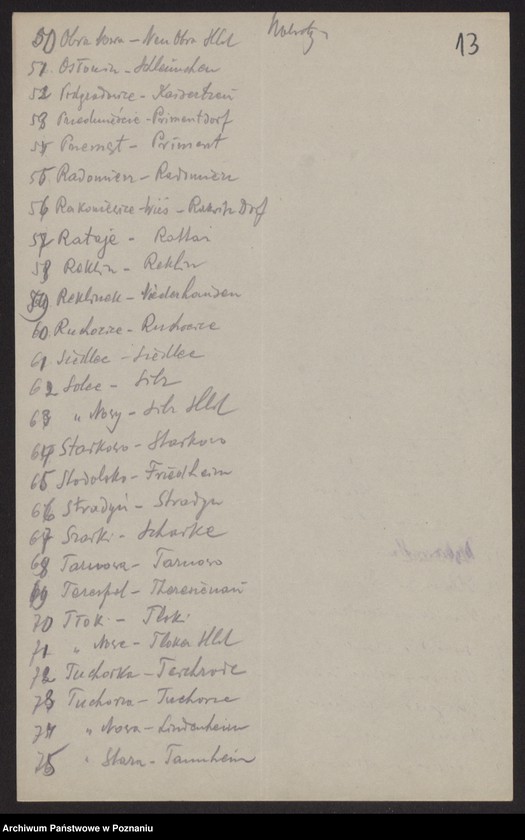 13
50 Obra Nowa – Neu Obra Hld
51. Osłonin – Schleimchen
52 Podgradowice – Kaisertreu
53 Przedmieście – Primentdorf
54 Przemęt – Priment
55. Radomierz – Radomierz
56 Rakoniewice-Wieś – Rakwitz Dorf
57 Rataje – Rattai
58 Reklin – Reklin
59 Reklinek – Niederhausen
60 Ruchocice – Ruchocice
61 Siedlec – Siedlec
62 Solec – Silz
63 „ Nowy – Silz Hld
64 Starkowo – Starkowo
65 Stodolsko – Friedheim
66 Stradyń – Stradyn
67 Szarki – Scharke
68 Tarnowa – Tarnowo
69 Terespol – Theresienau
70 Tłoki – Tloki
71 „ Nowe – Tloker Hld
72 Tuchorka – Teichrode
73 Tuchorza – Tuchorze
74 „ Nowa – Lindenheim
75 „ Stara – Tannheim
Archiwum Państwowe w Poznaniu